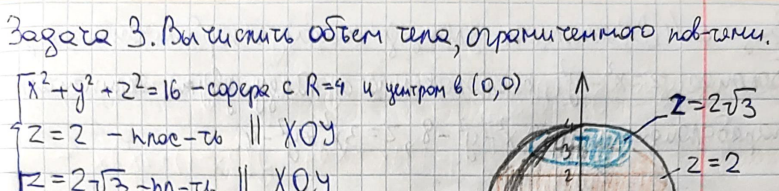 Задача 3. Вычислить объем тела, ограниченного пов-тями.
x²+y²+z²=16 – сфера с R=4 и центром в (0,0)
z=2 – плос-ть || XOY
z=2√3 – пл-ть || XOY
z=2√3
z=2
4
3
2